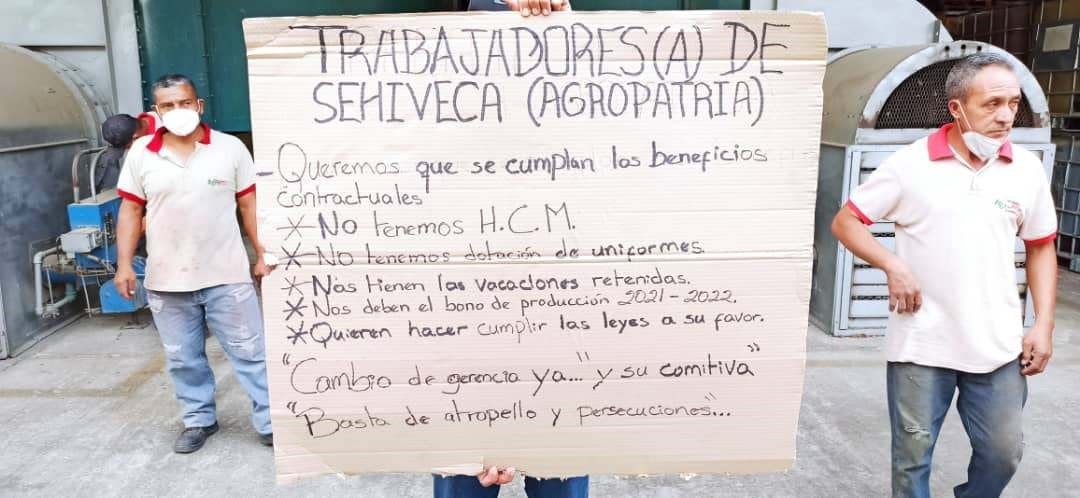 TRABAJADORES(A) DE
SEHIVECA (AGROPATRIA)
- Queremos que se cumplan los beneficios
contractuales
* No tenemos H.C.M.
* No tenemos dotación de uniformes.
* Nos tienen las vacaciones retenidas.
* Nos deben el bono de producción 2021-2022.
* Quieren hacer cumplir las leyes a su favor.
"Cambio de gerencia ya..." y su comitiva"
"Basta de atropello y persecuciones"...